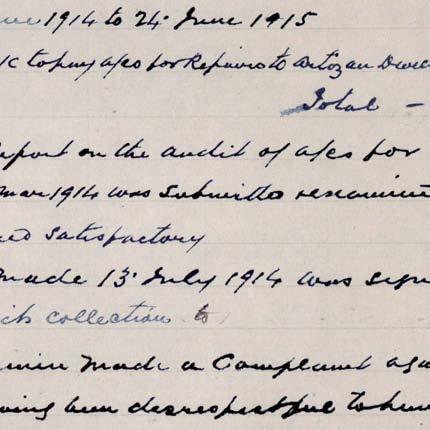 1914 to 24 June 1915
to pay a/cs for Repairs to Artizan Dwel
Total -
eport on the audit of a/cs for
Mar 1914 was submitted examine
ed satisfactory
made 13 July 1914 was sign
collection to
made a Complaint aga
ving been disrespectful to him